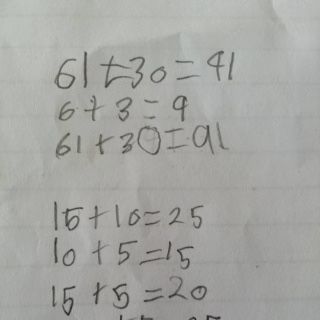 61+30=91
6+3=9
61+30=91
15+10=25
10+5=15
15+5=20